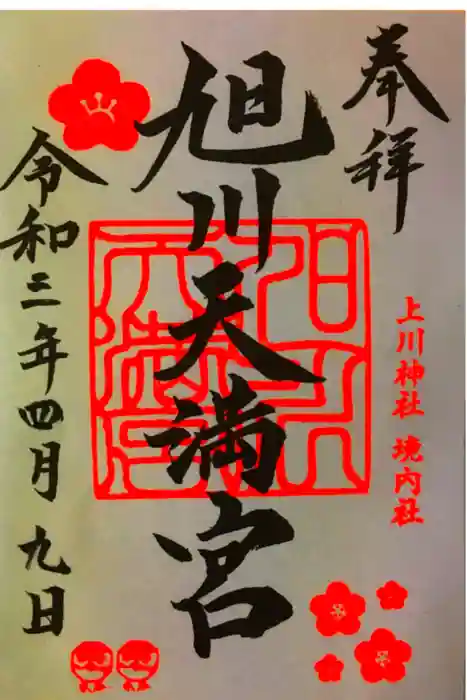 奉拝
上川神社 境内社
旭川天満宮
令和三年四月九日